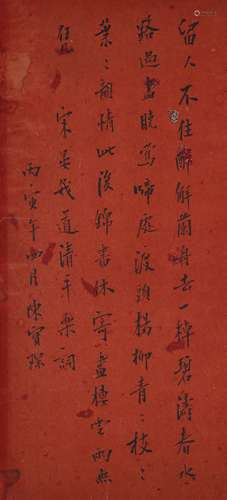 留人不住醉解蘭舟去一棹碧濤春水
路過盡曉鶯啼處渡頭楊柳青〻枝〻
葉〻離情此後錦書休寄畫樓雲雨無
憑　宋晏幾道清平樂詞
丙寅年四月陳寶琛